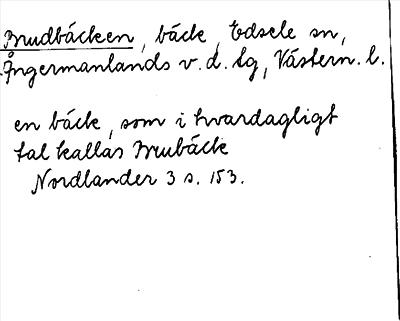 Brudbäcken, bäck, Edsele sn,
Ångermanlands v. d. lg, Västern. l.
en bäck, som i hvardagligt
tal kallas Brubäck
Nordlander 3 s. 153.